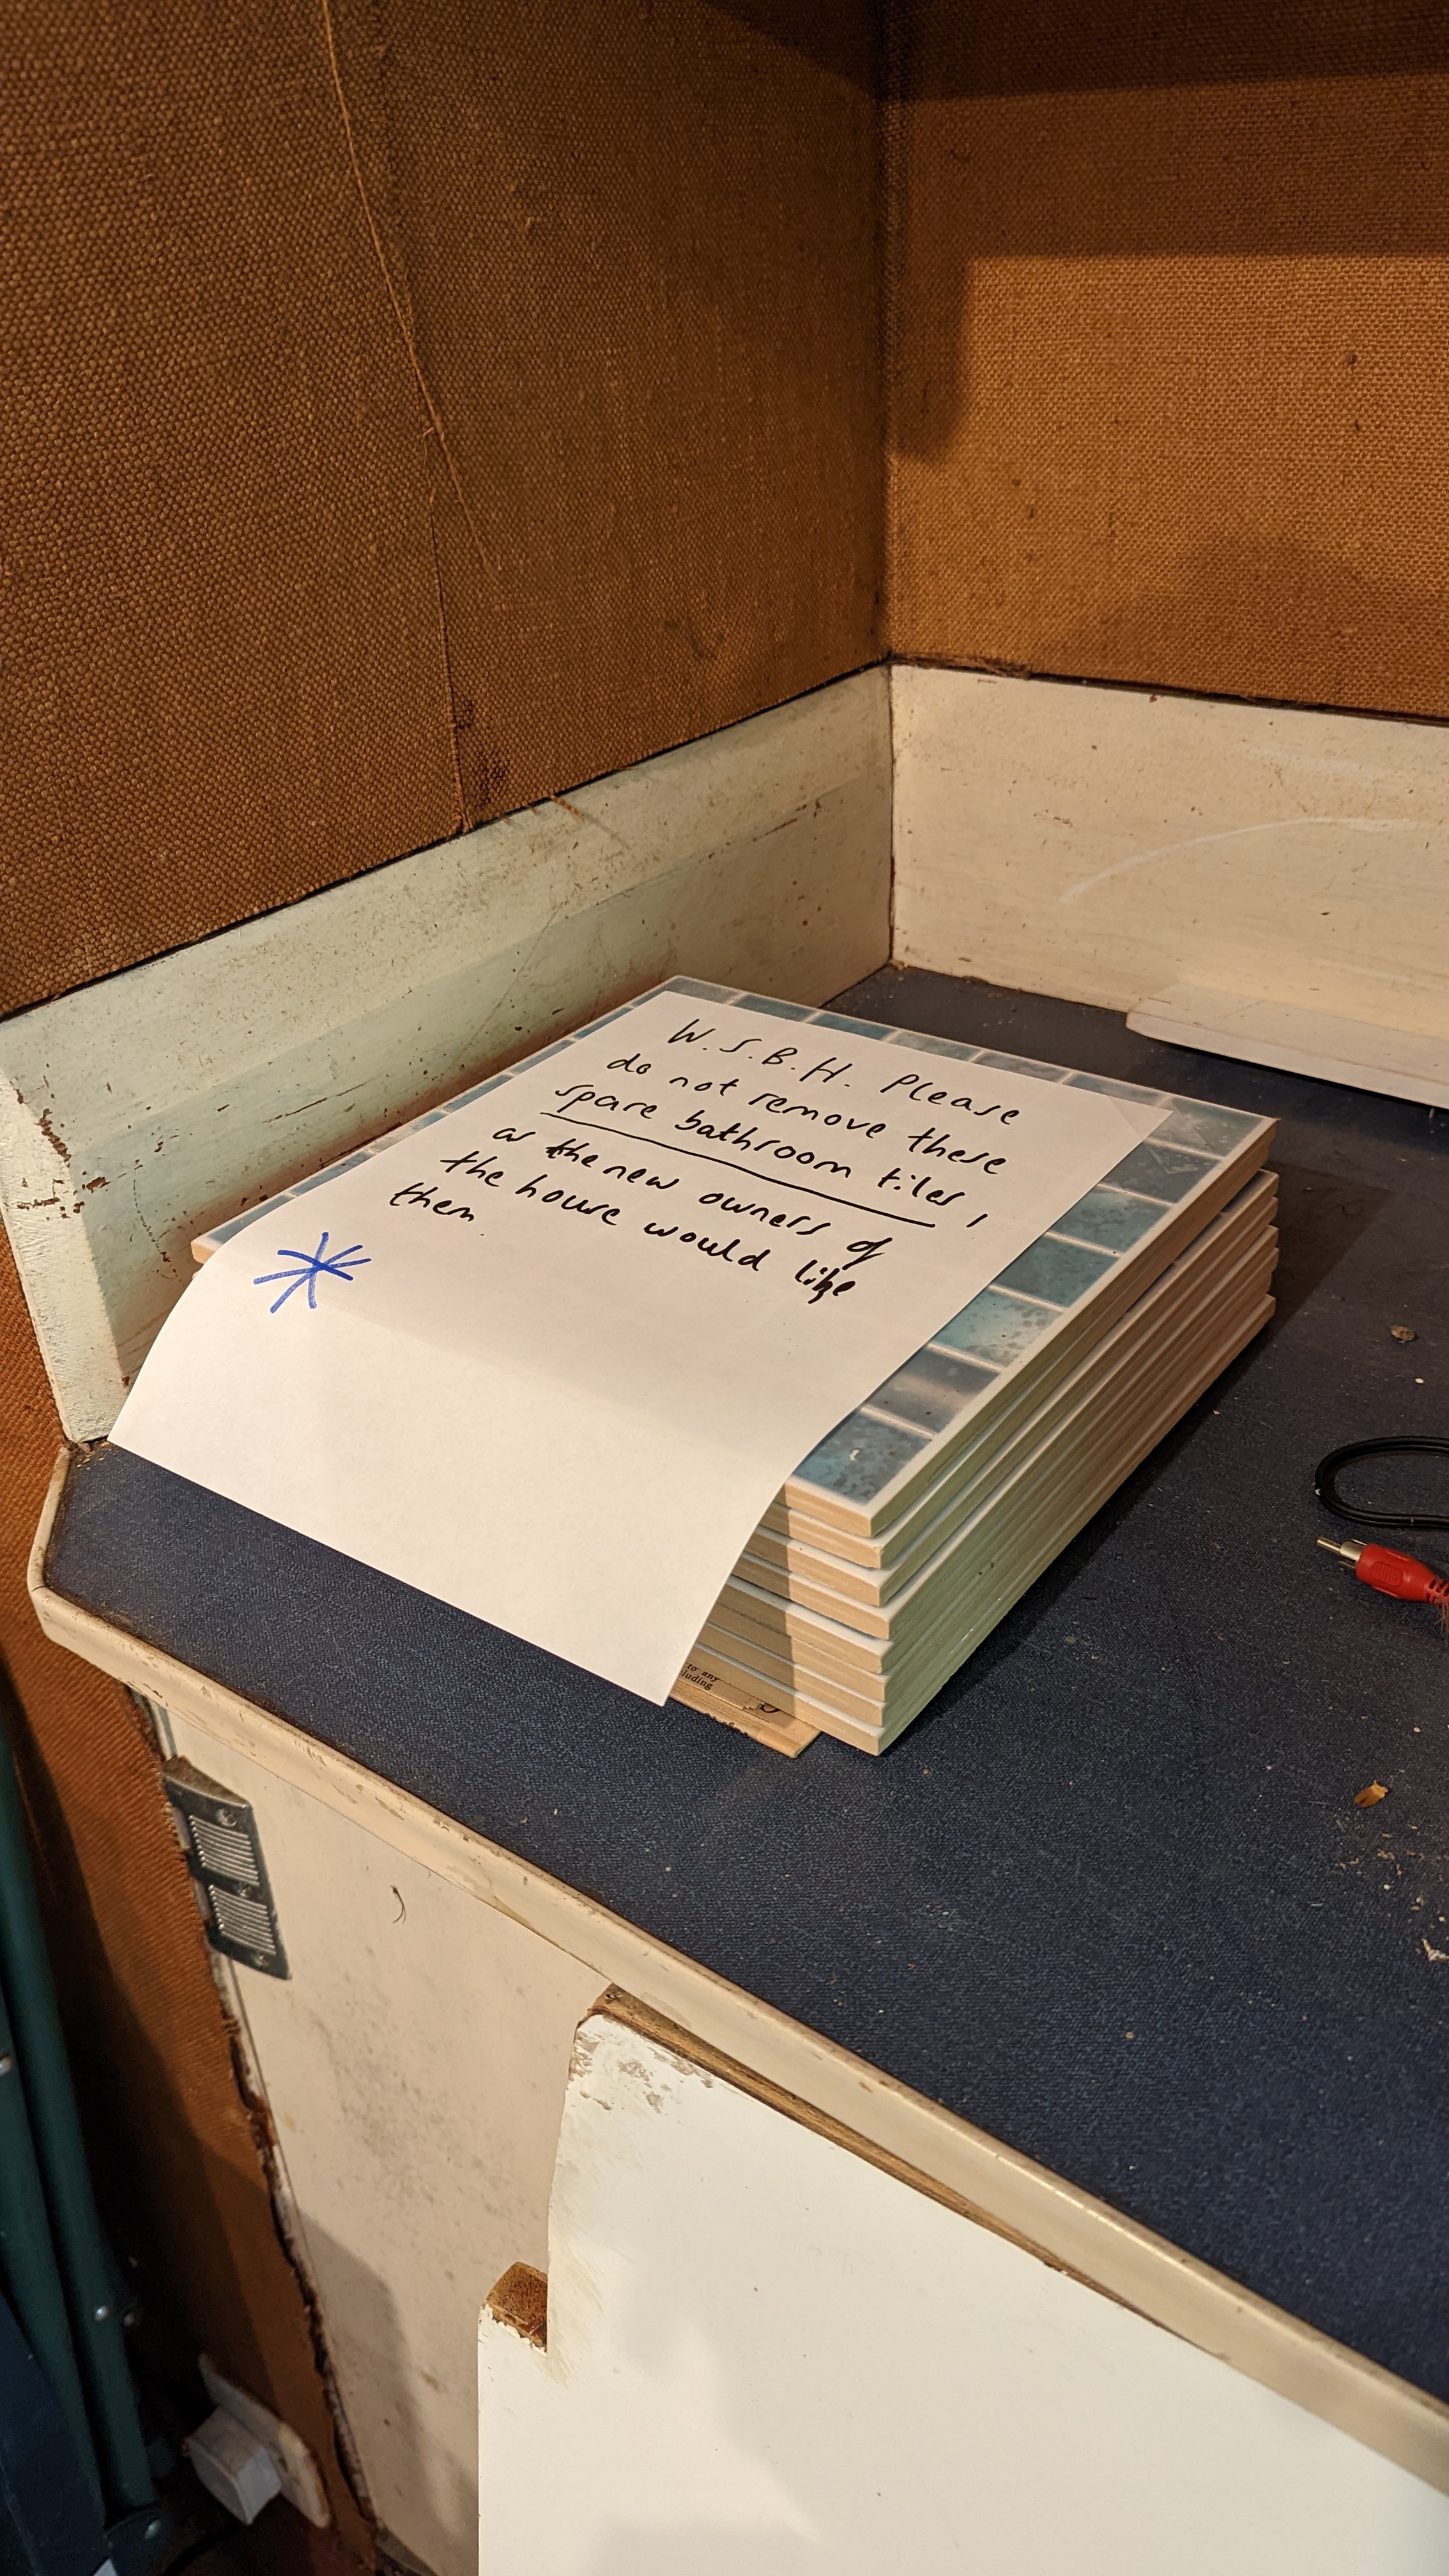 W.S.B.H. Please
do not remove these
spare bathroom tiles,
as the new owners of
the house would like
them
to any
luding